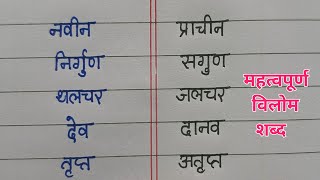 नवीन प्राचीन
निर्गुण सगुण
थलचर जलचर
देव दानव
तृप्त अतृप्त
महत्वपूर्ण
विलोम
शब्द